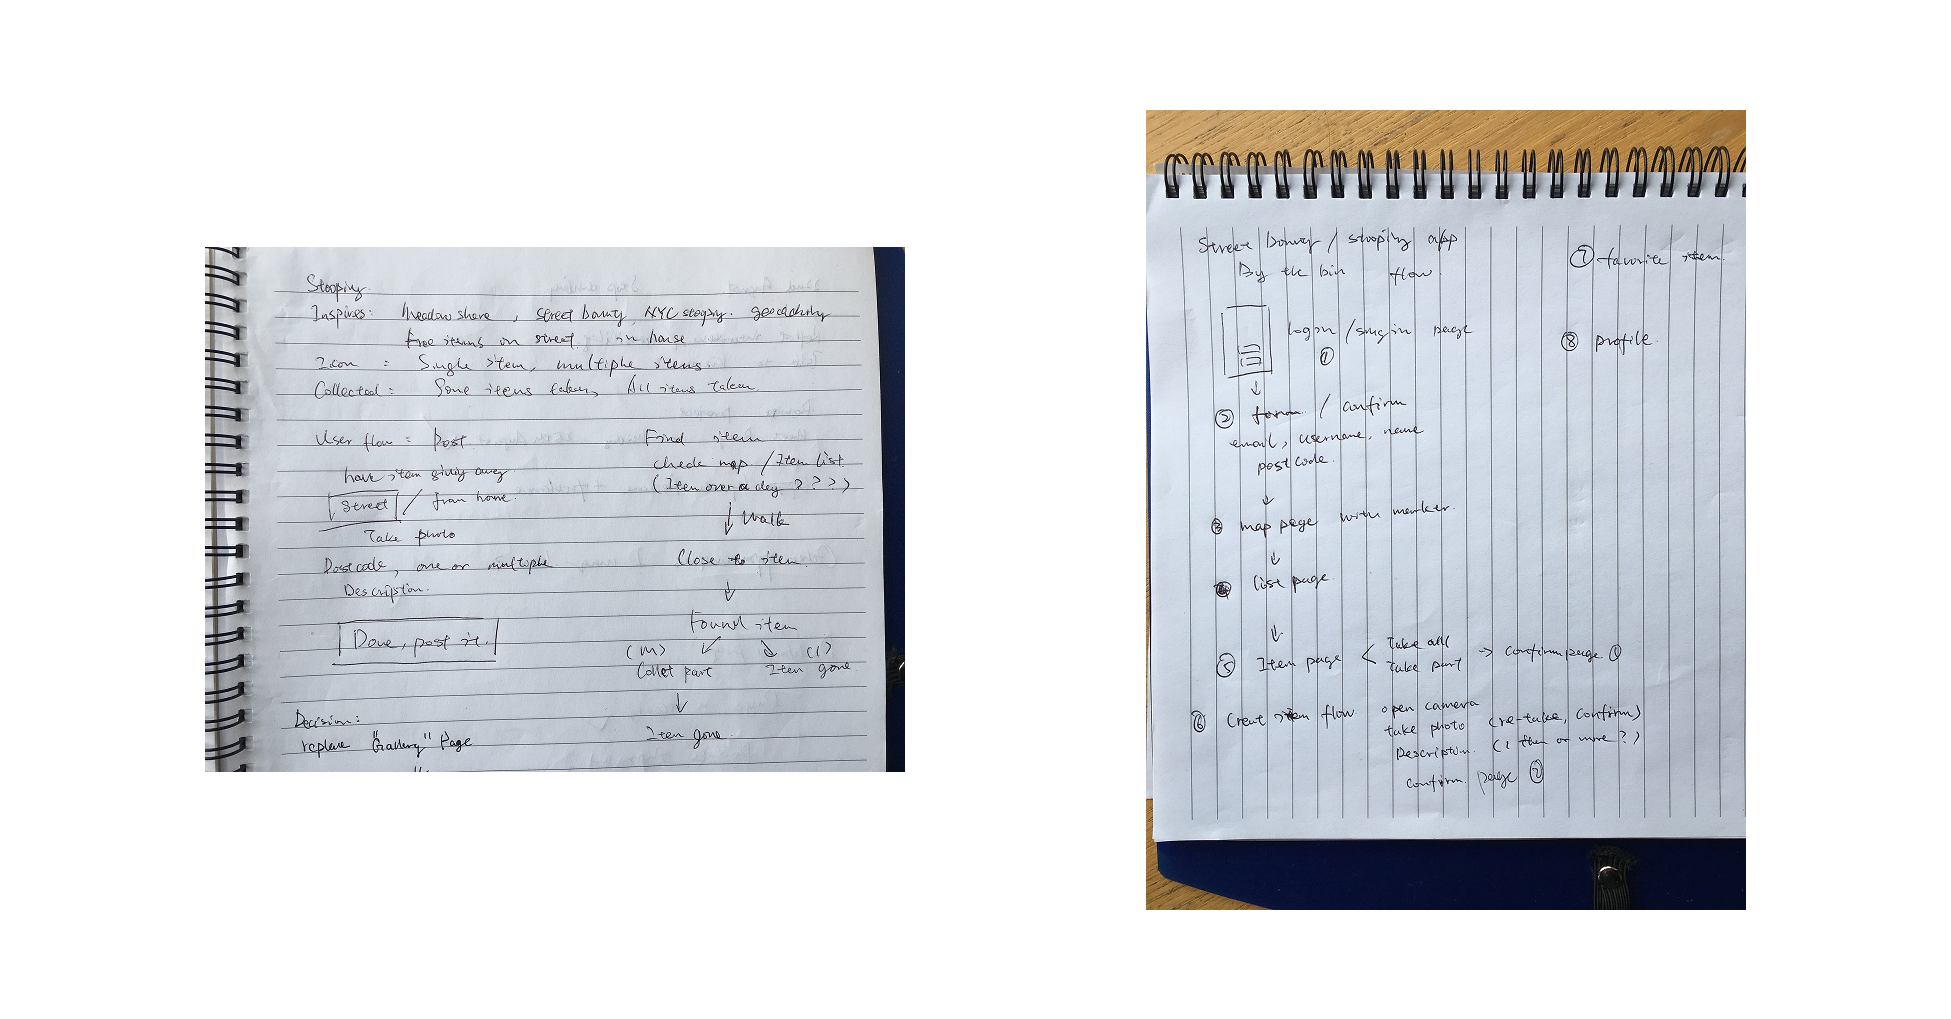 Stooping.
Inspires: Meadow share, street bounty, NYC stoopy. geocaching
Free items on street. in house
Icon = Single item, multiple items.
Collected: Some items taken, All items taken
User flow = Post
have item giving away
Street / from home.
Take photo
Postcode, one or multiple
Description.
Done, post it.
Decision:
replace "Gallery" Page
Find item
check map / Item list
(Item over a day ? ? ?)
Walk
Close to item.
Found item
(M) (1)
Collet part Item gone
Item gone.
Street Bounty / stooping app
By the bin flow.
login / sign in page
①
② / confirm
email, username, name
postcode.
③ map page with marker.
④ list page
⑤ Item page < Take all
take part → confirm page ①
⑥ Creat item flow. open camera
take photo (re-take, confirm)
Description. (1 item or more?)
confirm page ②
⑦ favorite item.
⑧ profile.